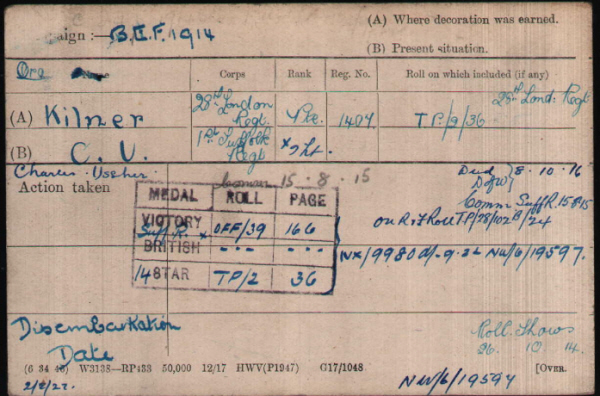 aign :— B.E.F. 1914
(A) Where decoration was earned.
(B) Present situation.
Name Corps Rank Reg. No. Roll on which included (if any)
(A) Kilner 28th London Regt. Pte. 1407 TP/2/36 28th Lond: Regt
(B) C. U. 1st Suffolk Regt x 2 Lt.
Charles Ussher Comm 15.8.15 Died 8.10.16
Action taken D of W
Comm Suff R. 15.8.15
MEDAL ROLL PAGE
VICTORY Suff R. x OFF/39 166
BRITISH - - - - - -
14 STAR TP/2 36
on R. I Roll TP/28/102 B/24
NX/9980 d/-9.22 NW/6/19597.
Disembarkation
Date
Roll Shows
26. 10. 14.
(6 34 46) W3138—RP433 50,000 12/17 HWV(P1947) G17/1048 [OVER.
NW/6/19597